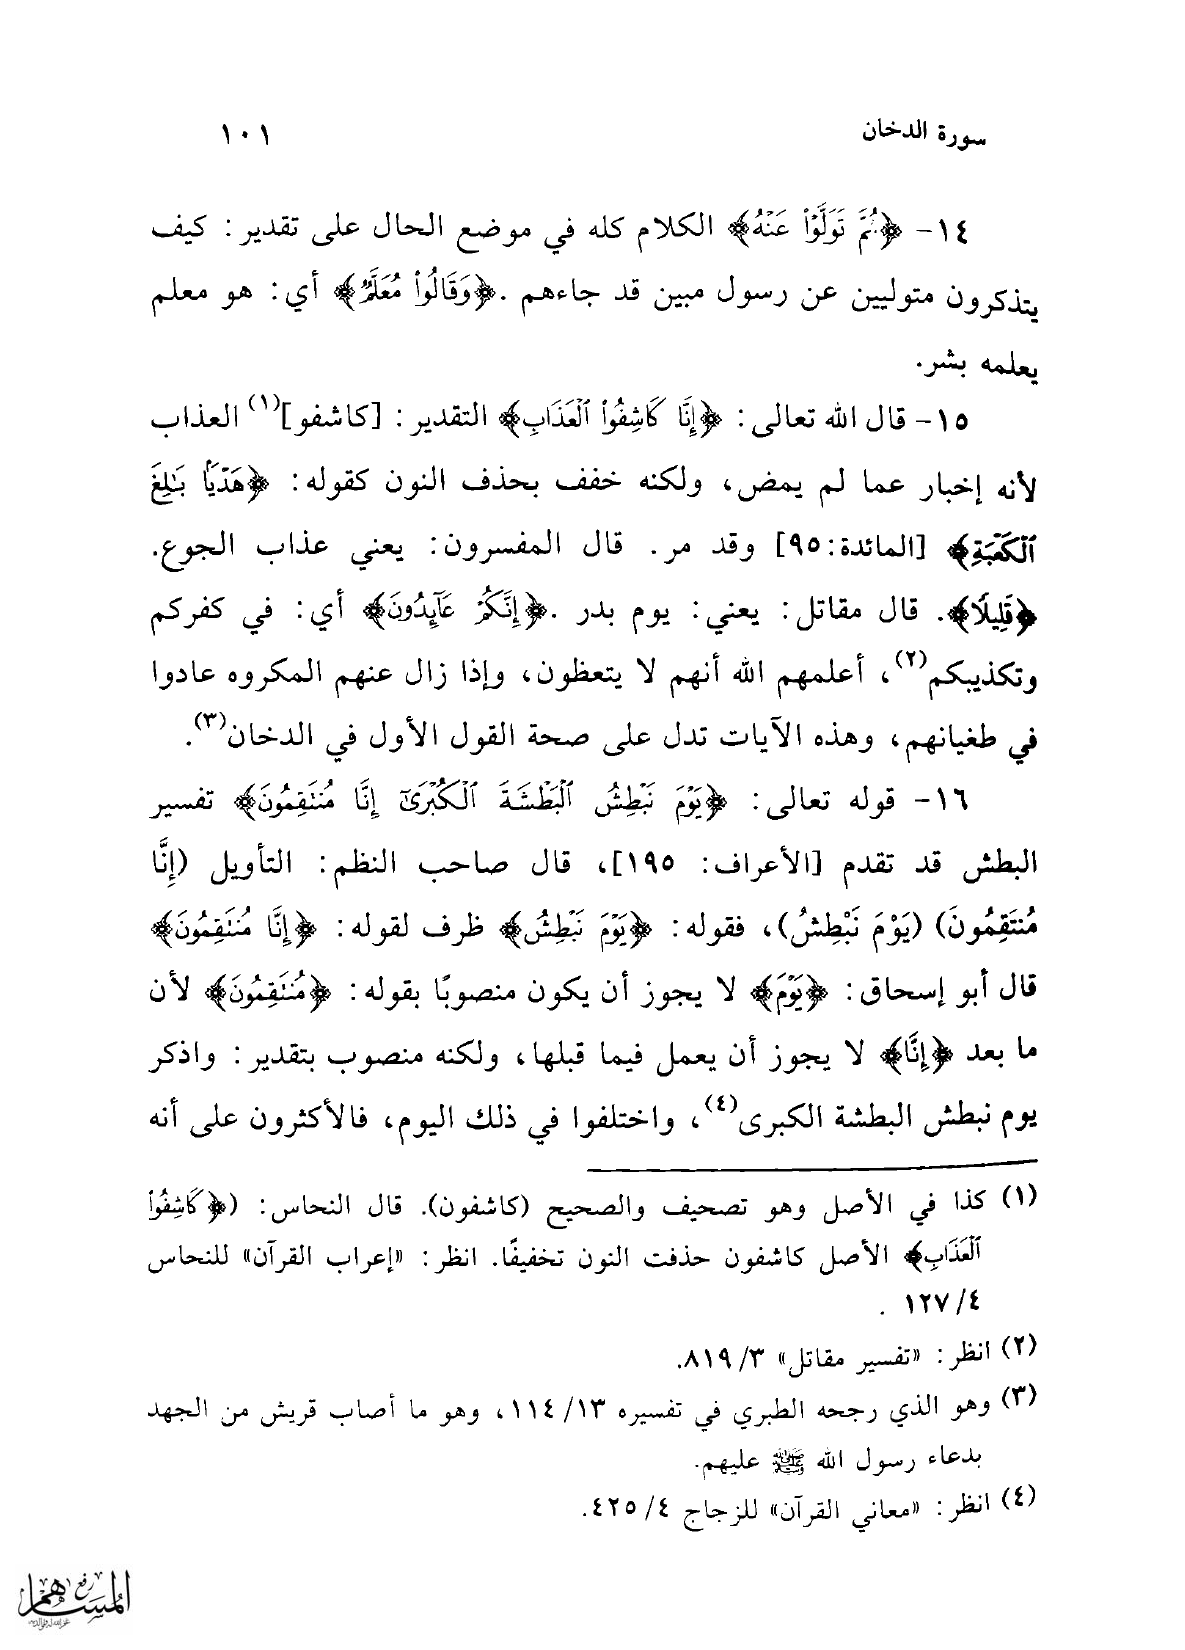 سورة الدخان ١٠١
١٤- ﴿ثُمَّ تَوَلَّوْا۟ عَنْهُ﴾ الكلام كله في موضع الحال على تقدير: كيف
يتذكرون متوليين عن رسول مبين قد جاءهم. ﴿وَقَالُوا۟ مُعَلَّمٌ﴾ أي: هو معلم
يعلمه بشر.
١٥- قال الله تعالى: ﴿إِنَّا كَاشِفُوا۟ ٱلْعَذَابِ﴾ التقدير: [كاشفو](١) العذاب
لأنه إخبار عما لم يمض، ولكنه خفف بحذف النون كقوله: ﴿هَدْيًۢا بَٰلِغَ
ٱلْكَعْبَةِ﴾ [المائدة:٩٥] وقد مر. قال المفسرون: يعني عذاب الجوع.
﴿قَلِيلًا﴾. قال مقاتل: يعني: يوم بدر. ﴿إِنَّكُمْ عَآئِدُونَ﴾ أي: في كفركم
وتكذيبكم(٢)، أعلمهم الله أنهم لا يتعظون، وإذا زال عنهم المكروه عادوا
في طغيانهم، وهذه الآيات تدل على صحة القول الأول في الدخان(٣).
١٦- قوله تعالى: ﴿يَوْمَ نَبْطِشُ ٱلْبَطْشَةَ ٱلْكُبْرَىٰٓ إِنَّا مُنتَقِمُونَ﴾ تفسير
البطش قد تقدم [الأعراف: ١٩٥]، قال صاحب النظم: التأويل (إِنَّا
مُنتَقِمُونَ) (يَوْمَ نَبْطِشُ)، فقوله: ﴿يَوْمَ نَبْطِشُ﴾ ظرف لقوله: ﴿إِنَّا مُنتَقِمُونَ﴾
قال أبو إسحاق: ﴿يَوْمَ﴾ لا يجوز أن يكون منصوبًا بقوله: ﴿مُنتَقِمُونَ﴾ لأن
ما بعد ﴿إِنَّا﴾ لا يجوز أن يعمل فيما قبلها، ولكنه منصوب بتقدير: واذكر
يوم نبطش البطشة الكبرى(٤)، واختلفوا في ذلك اليوم، فالأكثرون على أنه
(١) كذا في الأصل وهو تصحيف والصحيح (كاشفون). قال النحاس: (﴿كَاشِفُوا۟
ٱلْعَذَابِ﴾ الأصل كاشفون حذفت النون تخفيفًا. انظر: «إعراب القرآن» للنحاس
٤/ ١٢٧ .
(٢) انظر: «تفسير مقاتل» ٣/ ٨١٩.
(٣) وهو الذي رجحه الطبري في تفسيره ١٣/ ١١٤، وهو ما أصاب قريش من الجهد
بدعاء رسول الله ﷺ عليهم.
(٤) انظر: «معاني القرآن» للزجاج ٤/ ٤٢٥.